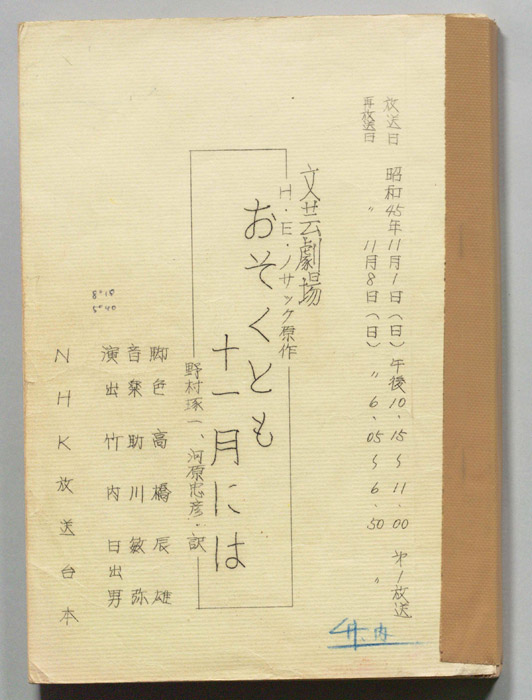 放送日 昭和45年11月1日(日)午後10.15~11.00 第1放送
再放送日 〃 11月8日(日) 〃 6.05~6.50 〃
文芸劇場
H・E・ノサック原作
おそくとも
十一月には
野村琢一、河原忠彦・訳
脚色 高橋辰雄
音楽 助川敏弥
演出 竹内日出男
NHK放送台本
8"15
5"40
竹内